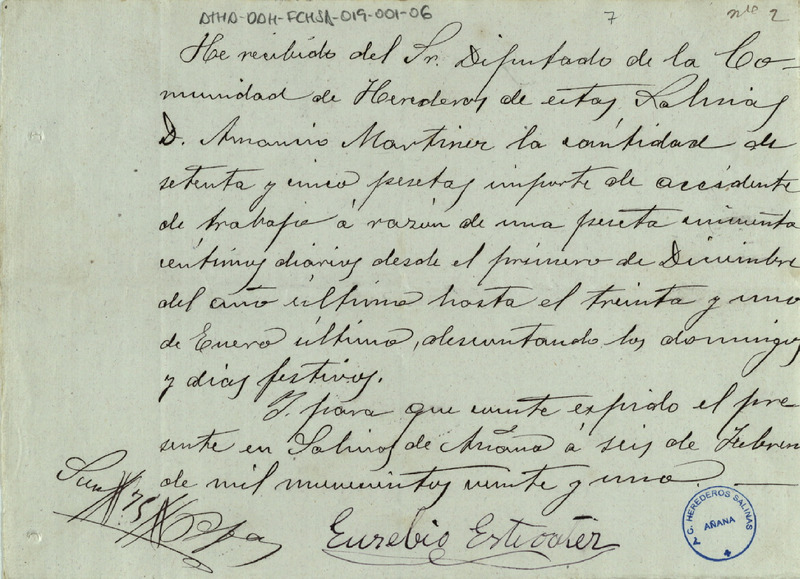 ATHA-DAH-FCHSA-019-001-06
7
nº 2
He recibido del Sr. Diputado de la Co-
munidad de Herederos de estas Salinas
D. Amancio Martinez la cántidad de
setenta y cinco pesetas importe de accidente
de trabajo á razón de una peseta cincuenta
céntimos diários desde el primero de Diciembre
del año último hasta el treinta y uno
de Enero último, descontando los domingos
y dias festivos.
Y para que conste expido el pre-
sente en Salinas de Añana á seis de Febrero
de mil novecientos veinte y uno.
Son #75# Ptas
Eusebio
C. HEREDEROS SALINAS
AÑANA